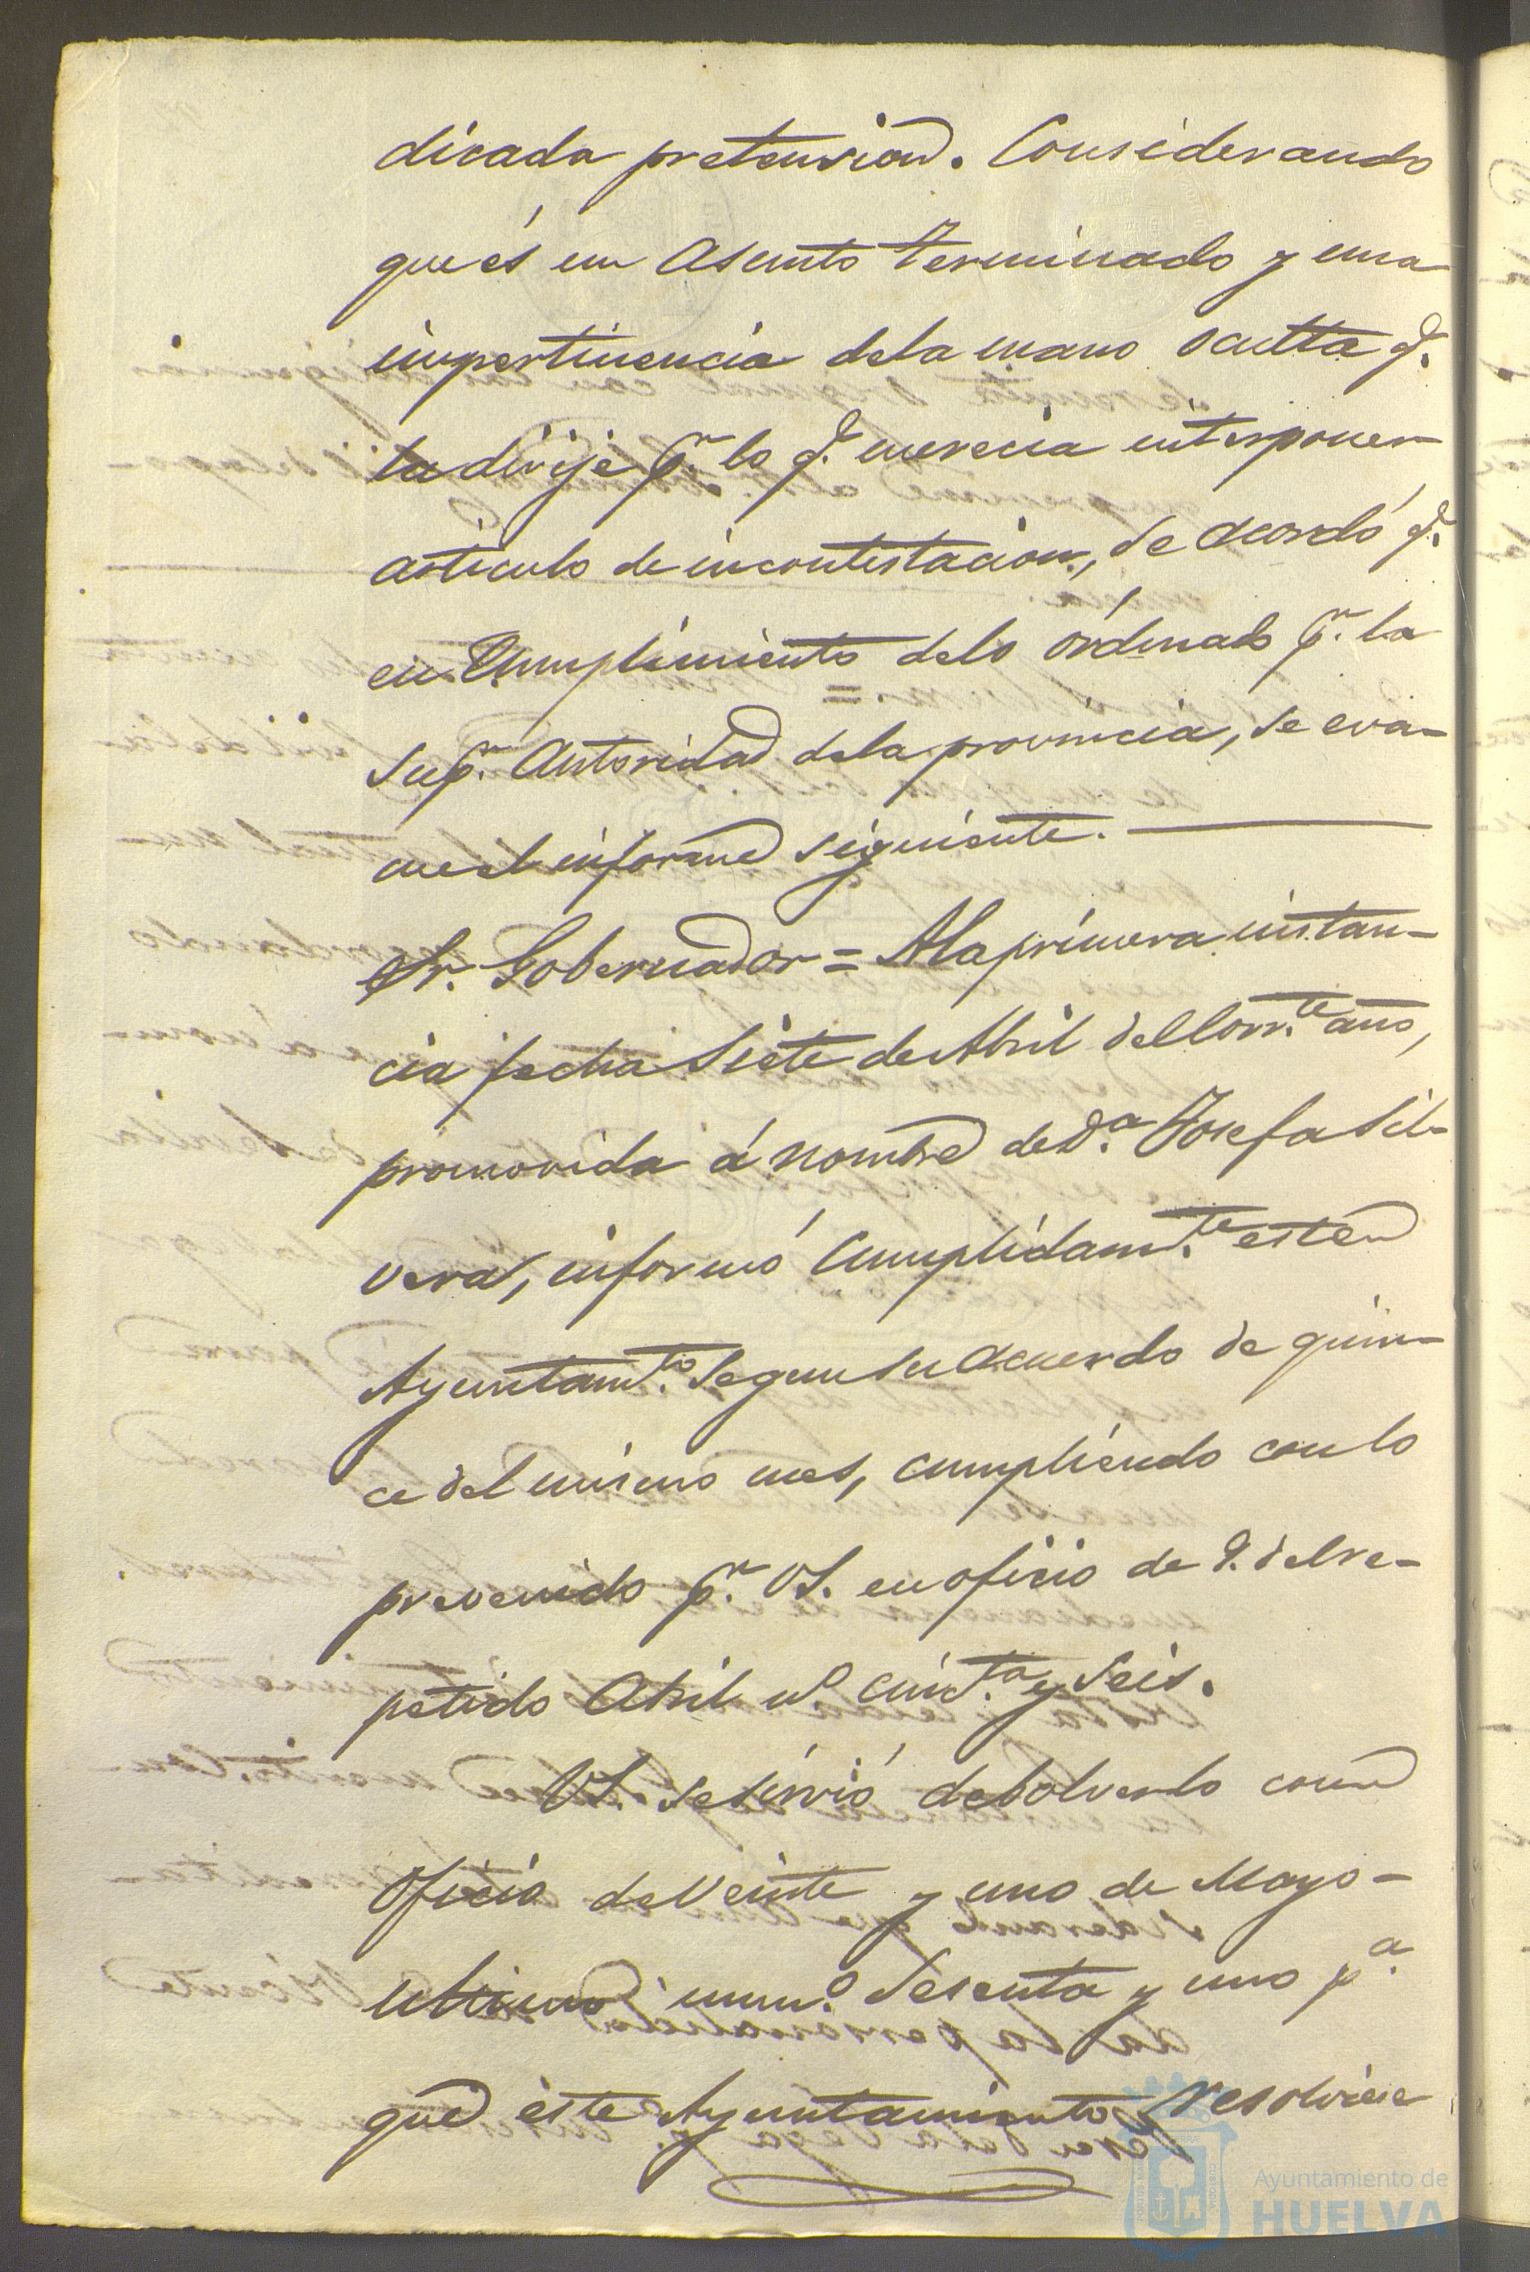 dicada pretension. Considerando
que és un Asunto terminado y una
impertinencia dela mano oculta q.e
la dirije p.r lo q.e merecia interponer
articulo de incontestacion, se acordó q.e
en Cumplimiento delo órdenado p.r la
Sup.r Autoridad dela provincia, se eva-
cue el informe siguiente.
Sr. Gobernador = A la primera instan-
cia fecha Siete de Abril del Corr.te año,
promovida á nombre de D.a Josefa Sil-
vera, informó Cumplidam.te este
Ayuntam.to Segun su acuerdo de quin-
ce del mismo mes, cumpliendo con lo
prevenido p.r VS. en oficio de 9. del re-
petido Abril n.o cinc.ta y Seis.
VS. se sirvió debolverlo con
Oficio de Veinte y uno de Mayo-
ultimo núm.o Sesenta y uno p.a
que éste Ayuntamiento resolviese
Ayuntamiento de
HUELVA